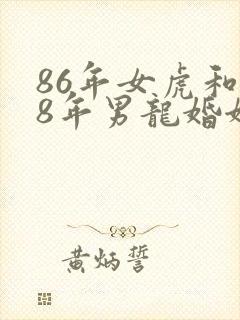 86年女虎和
8年男龍婚姻
黄炳誓